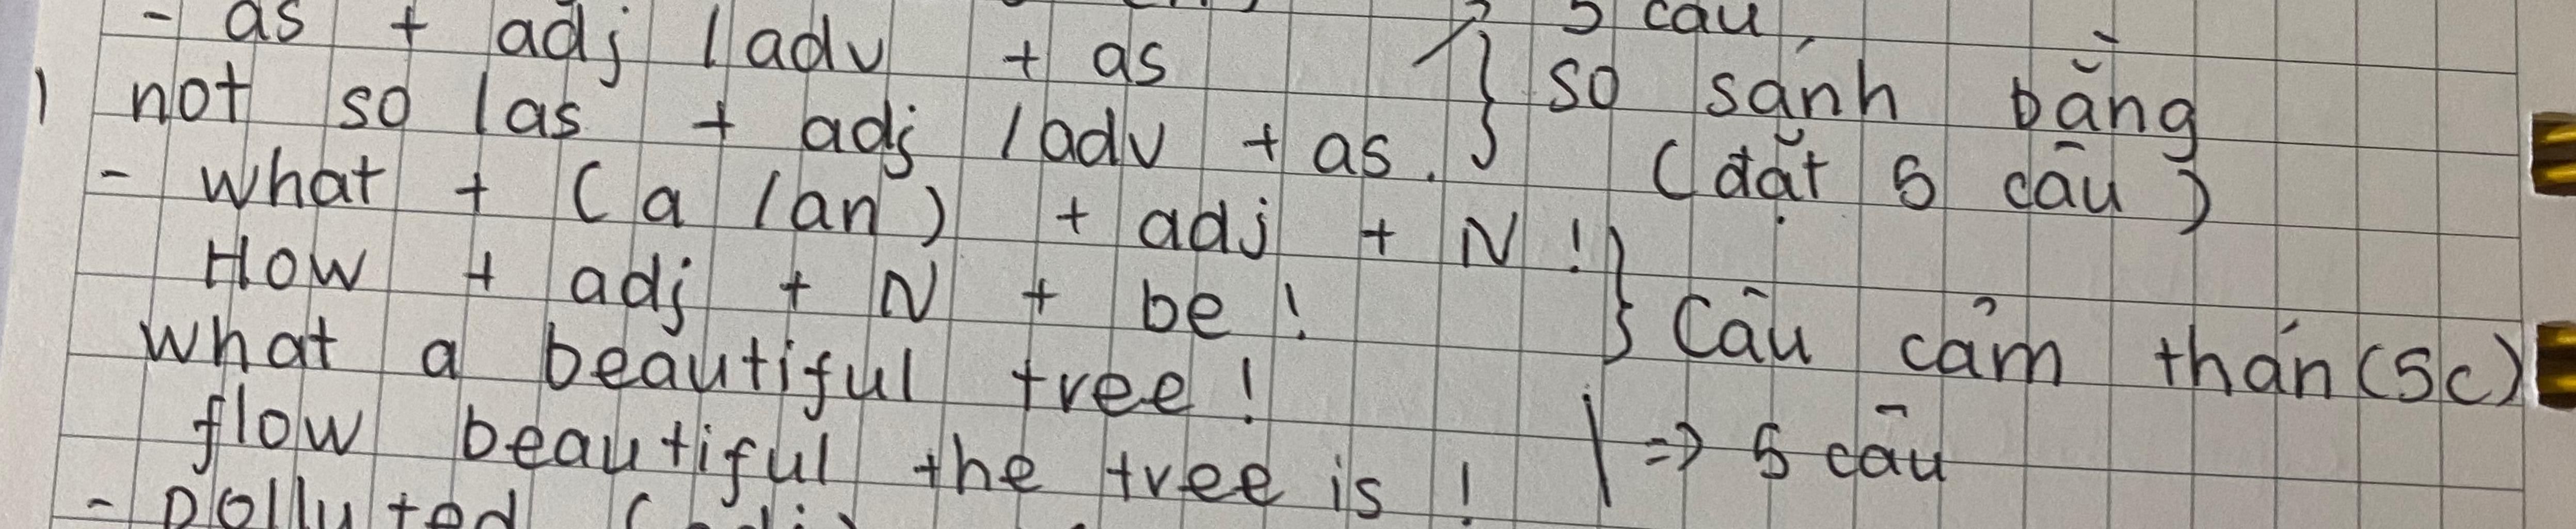 - as + adj / adv + as
5 câu
not so / as + adj / adv + as. } so sánh bằng
(đặt 5 câu)
- what + (a / an) + adj + N !
How + adj + N + be ! } Câu cảm thán (5c)
what a beautiful tree !
flow beautiful the tree is ! | => 5 câu
- polluted (adj)